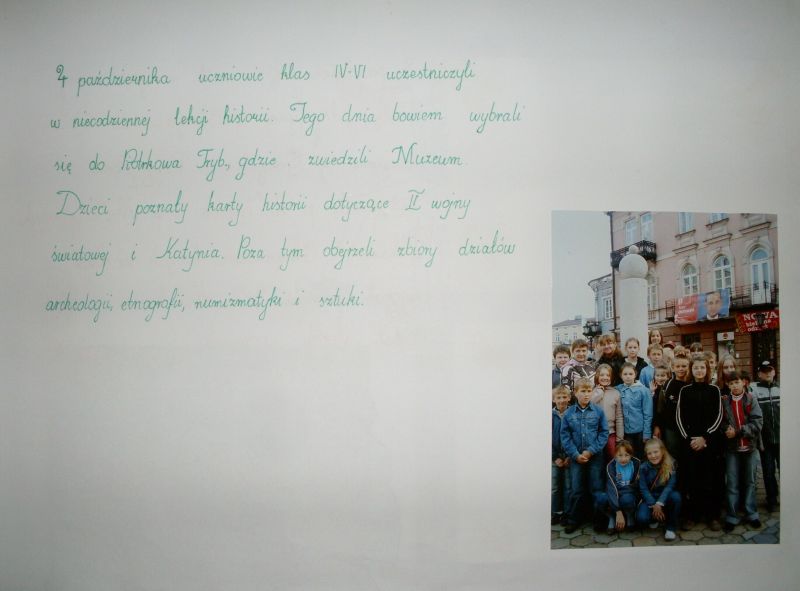 4 października uczniowie klas IV-VI uczestniczyli
w niecodziennej lekcji historii. Tego dnia bowiem wybrali
się do Piotrkowa Tryb., gdzie zwiedzili Muzeum.
Dzieci poznały karty historii dotyczące II wojny
światowej i Katynia. Poza tym obejrzeli zbiory działów
archeologii, etnografii, numizmatyki i sztuki.
NOWA